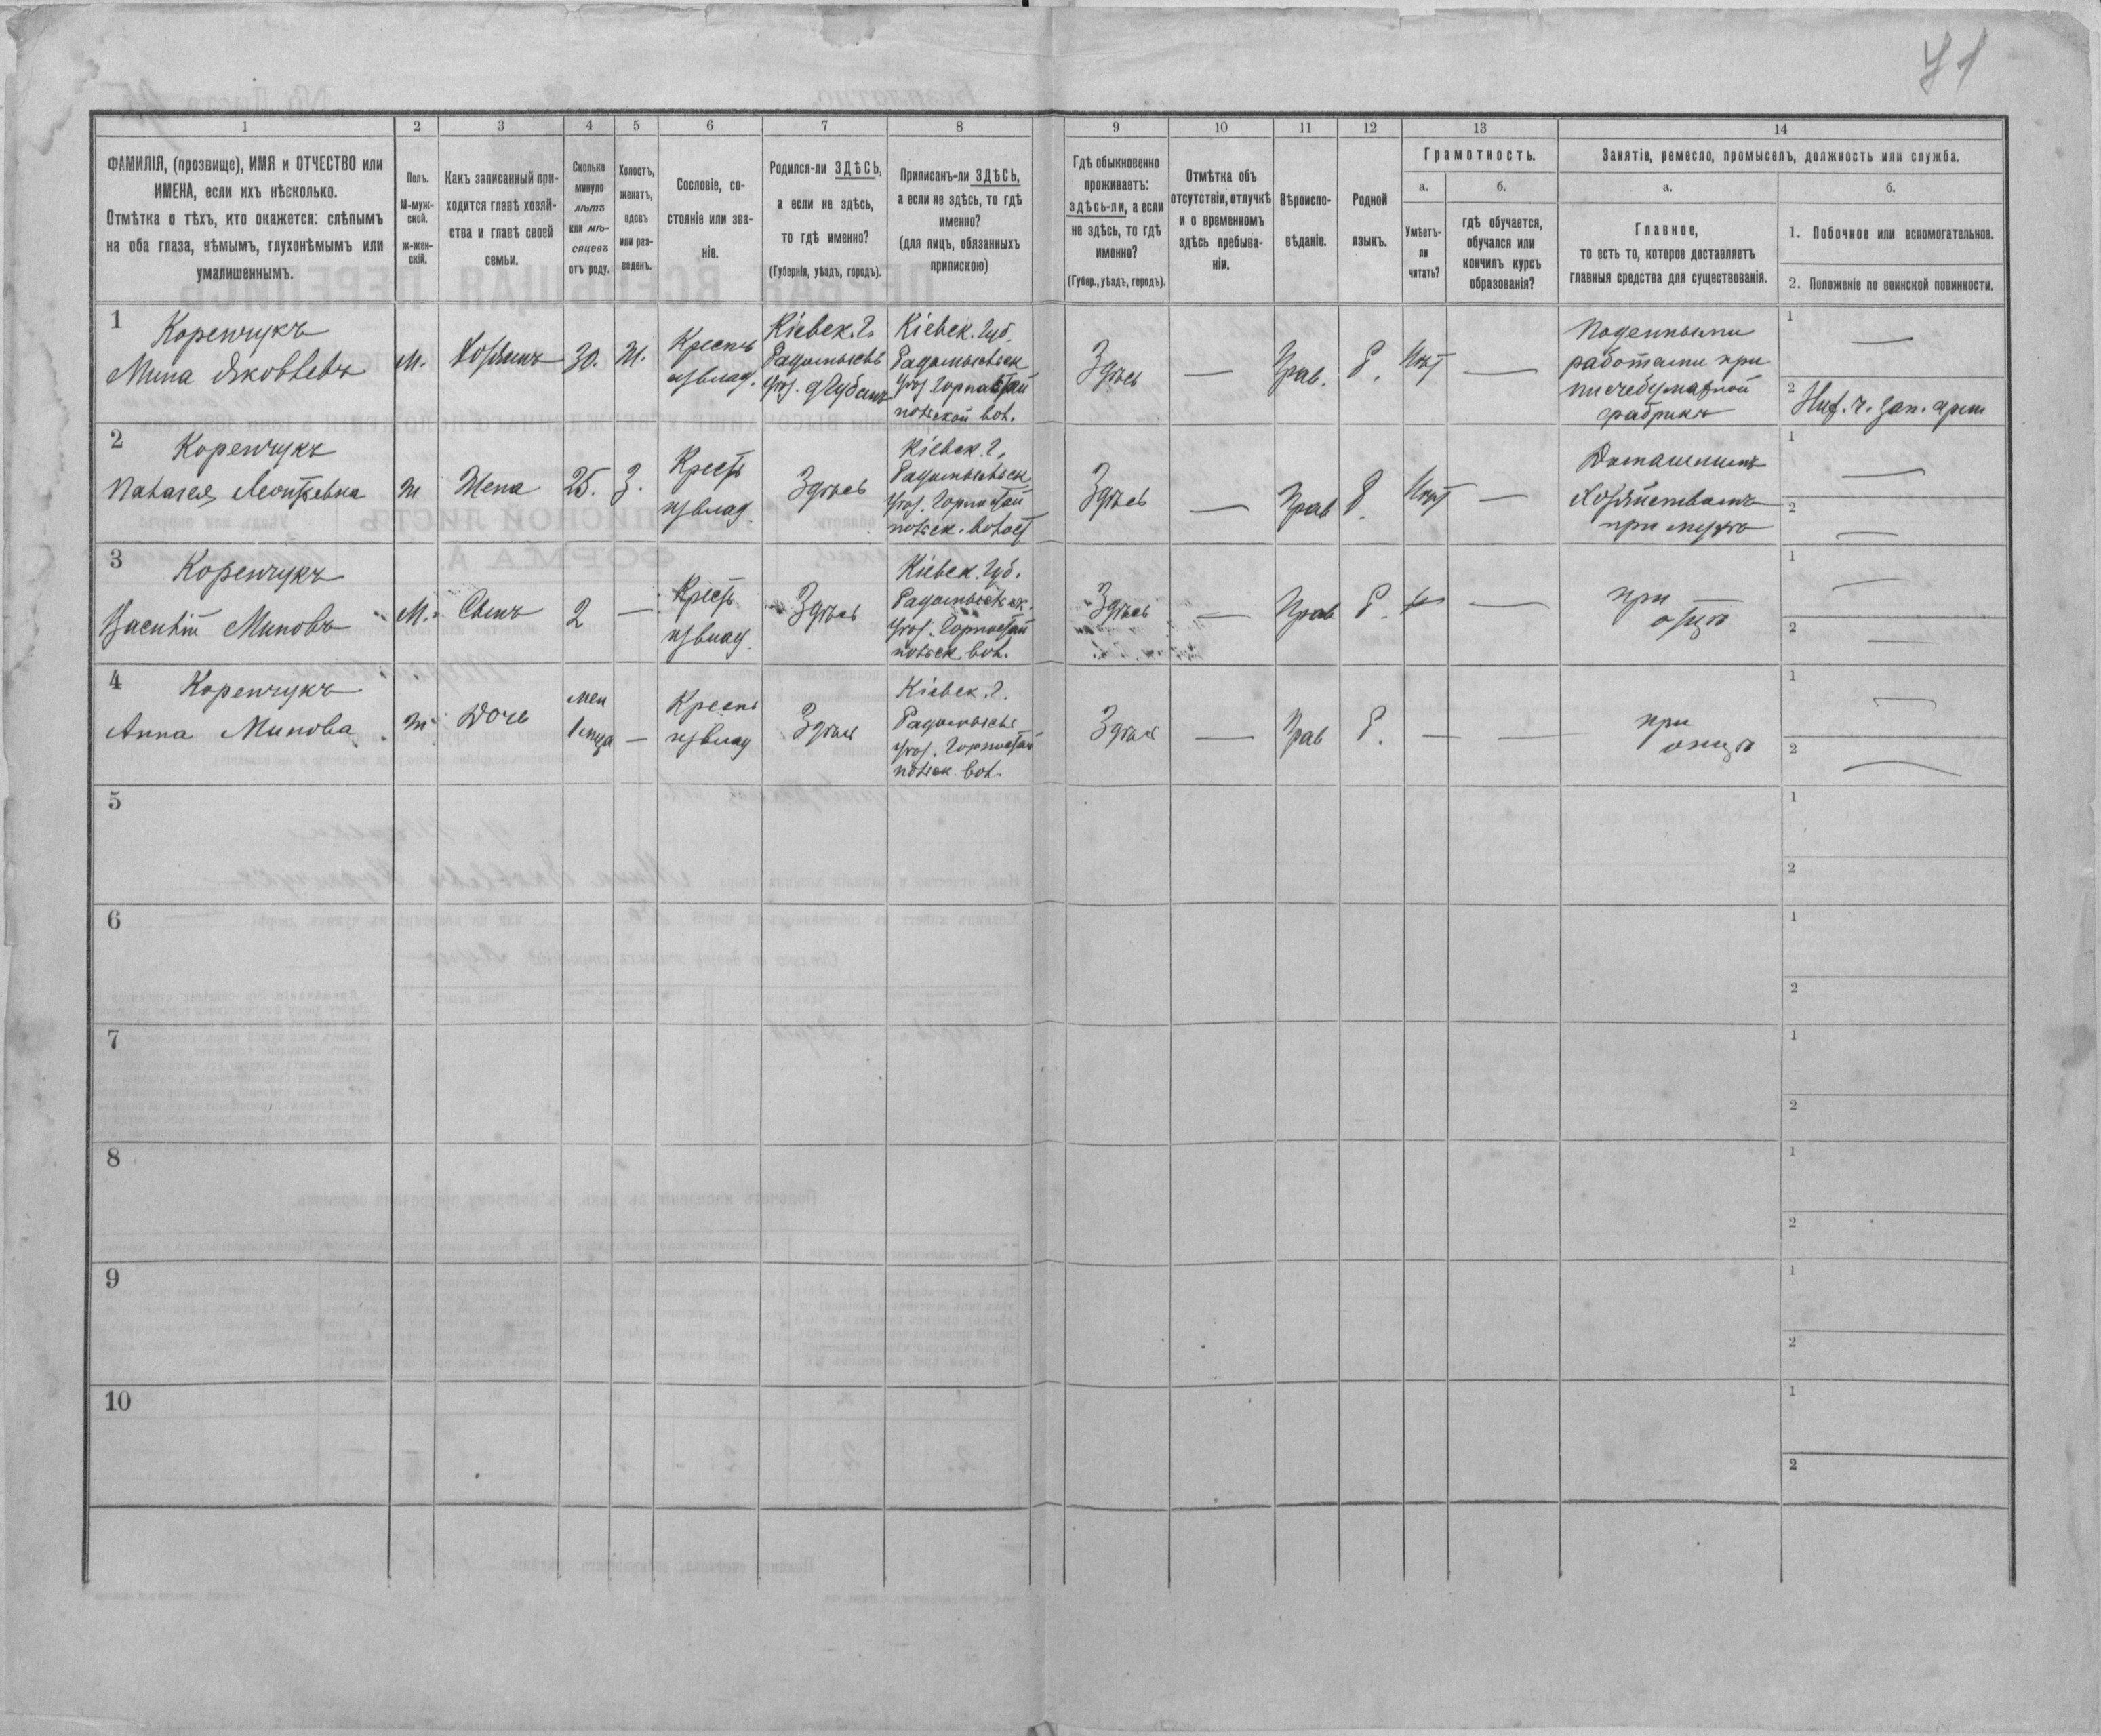 71
1
2
3
4
5
6
7
8
9
10
11
12
13
14
ФАМИЛІЯ, (прозвище), ИМЯ и ОТЧЕСТВО или
ИМЕНА, если ихъ нѣсколько.
Отмѣтка о тѣхъ, кто окажется: слѣпымъ
на оба глаза, нѣмымъ, глухонѣмымъ или
умалишеннымъ.
Полъ.
М-муж-
ской.
ж-жен-
скій.
Какъ записанный при-
ходится главѣ хозяй-
ства и главѣ своей
семьи.
Сколько
минуло
лѣтъ
или мѣ-
сяцевъ
отъ роду.
Холостъ,
женатъ,
вдовъ
или раз-
веденъ.
Сословіе, со-
стояніе или зва-
ніе.
Родился-ли ЗДѢСЬ,
а если не здѣсь,
то гдѣ именно?
(Губернія, уѣздъ, городъ).
Приписанъ-ли ЗДѢСЬ,
а если не здѣсь, то гдѣ
именно?
(для лицъ, обязанныхъ
припискою)
Гдѣ обыкновенно
проживаетъ:
здѣсь-ли, а если
не здѣсь, то гдѣ
именно?
(Губер., уѣздъ, городъ).
Отмѣтка объ
отсутствіи, отлучкѣ
и о временномъ
здѣсь пребыва-
ніи.
Вѣроиспо-
вѣданіе.
Родной
языкъ.
Грамотность.
а.
б.
Умѣетъ-
ли
читать?
гдѣ обучается,
обучался или
кончилъ курсъ
образованія?
Занятіе, ремесло, промыселъ, должность или служба.
а.
б.
Главное,
то есть то, которое доставляетъ
главныя средства для существованія.
1. Побочное или вспомогательное.
2. Положеніе по воинской повинности.
1
Коренчукъ
Мина Яковлевъ
М.
Хозяинъ
30.
Ж.
Крестъ
изъ влад.
Кіевск. г.
Радомысль
уѣз.
Кіевск. Губ.
Радомысльск
уѣз Горностай
польской вол.
Здѣсь
—
Прав.
Р.
Нѣт
—
Поденными
работами при
писчебумажной
фабрикѣ
1
—
2
зап. арм
2
Коренчукъ
Наталея Леонтьевна
ж
Жена
25.
З.
Крест
изъ влад.
Здѣсь
Кіевск. г.
Радомысльск
уѣз. Горностай
польск. волост
Здѣсь
—
Прав
Р.
Нѣт
—
Домашнимъ
хозяйствомъ
при мужѣ
1
—
2
—
3
Коренчукъ
Василій Миновъ
М.
Сынъ
2
—
Крест
изъ влад.
Здѣсь
Кіевск. Губ.
Радомысльск.
уѣз. Горностай
польск. вол.
Здѣсь
—
Прав
Р.
—
при
отцѣ
1
—
2
—
4
Коренчукъ
Анна Минова
ж
Дочь
мен
1 мца
—
Крест
изъ влад
Здѣсь
Кіевск. г.
Радомысль
уѣз. Горностай
польск. вол.
Здѣсь
—
Прав
Р.
—
—
при
отцѣ
1
—
2
—
5
1
2
6
1
2
7
1
2
8
1
2
9
1
2
10
1
2